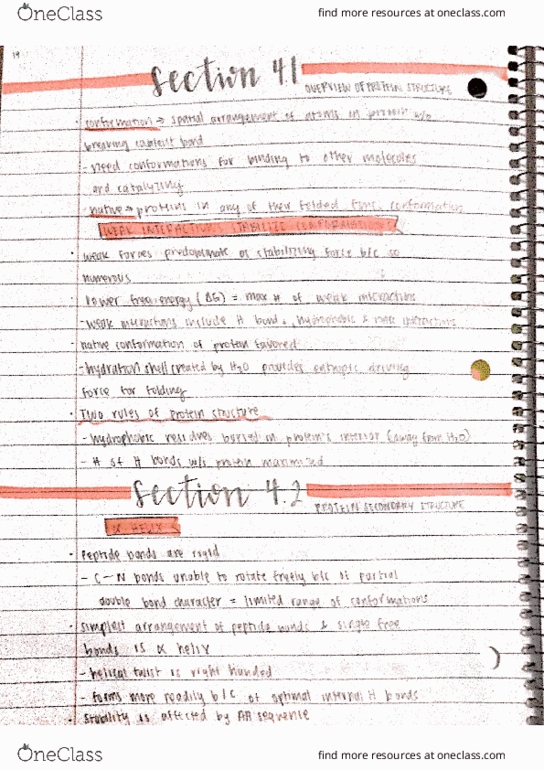 OneClass
find more resources at oneclass.com
19
Section 4.1
OVERVIEW OF PROTEIN STRUCTURE
• conformation → spatial arrangement of atoms in protein w/o
breaking covalent bond
- need conformations for binding to other molecules
and catalyzing
- native → proteins in any of their folded func. conformation
WEAK INTERACTIONS STABILIZE CONFORMATION
• weak forces predominate as stabilizing force b/c so
numerous
• lower free energy (ΔG) = max # of weak interactions
- weak interactions include H bond, hydrophobic & ionic interactions
• native conformation of protein favored
- hydration shell created by H2O provides entropic driving
force for folding
• Two rules of protein structure
- hydrophobic residues buried in protein's interior (away from H2O)
- # of H bonds w/s protein maximized
Section 4.2
PROTEIN SECONDARY STRUCTURE
α HELIX
• Peptide bonds are rigid
- C-N bonds unable to rotate freely b/c of partial
double bond character = limited range of conformations
• simplest arrangement of peptide bonds & single free
bonds is α helix
- helical twist is right handed
- forms more readily b/c of optimal internal H bonds
• Stability is affected by AA sequence
OneClass
find more resources at oneclass.com